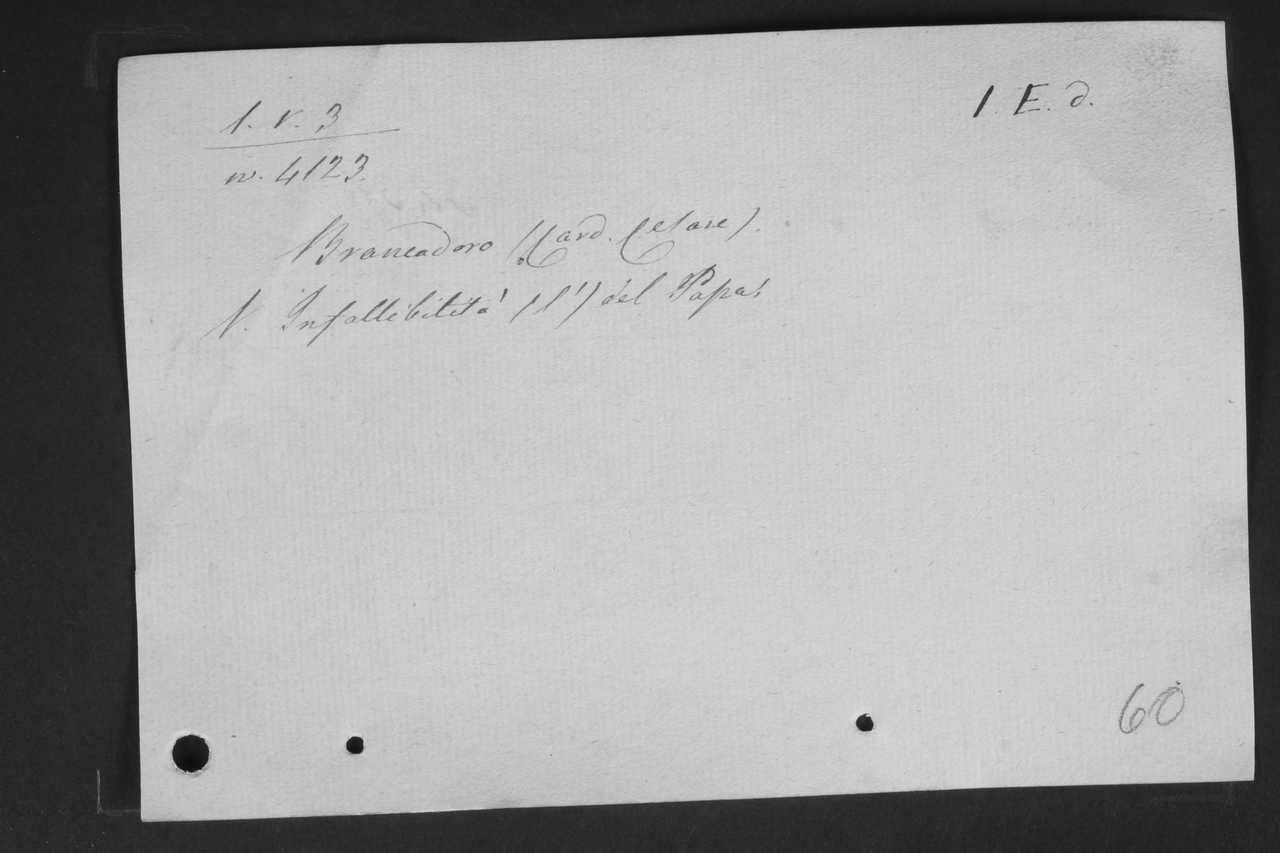 1. V. 3
1. E. d.
n. 4123.
Brancadoro (Card. Cesare).
V. Infallibilità (l') del Papa.
60